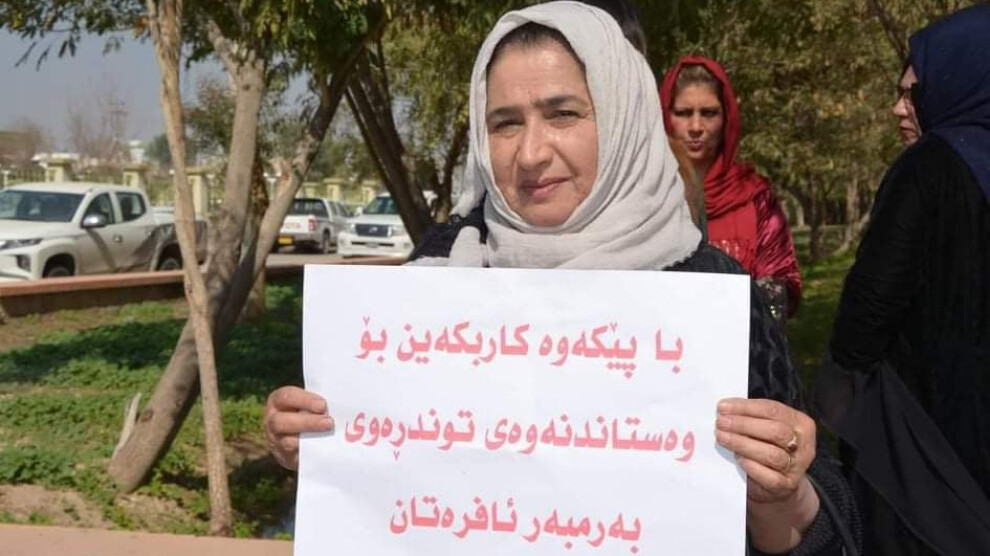 با پێکەوە کاربکەین بۆ
وەستاندنەوەی توندڕەوی
بەرمبەر ئافرەتان